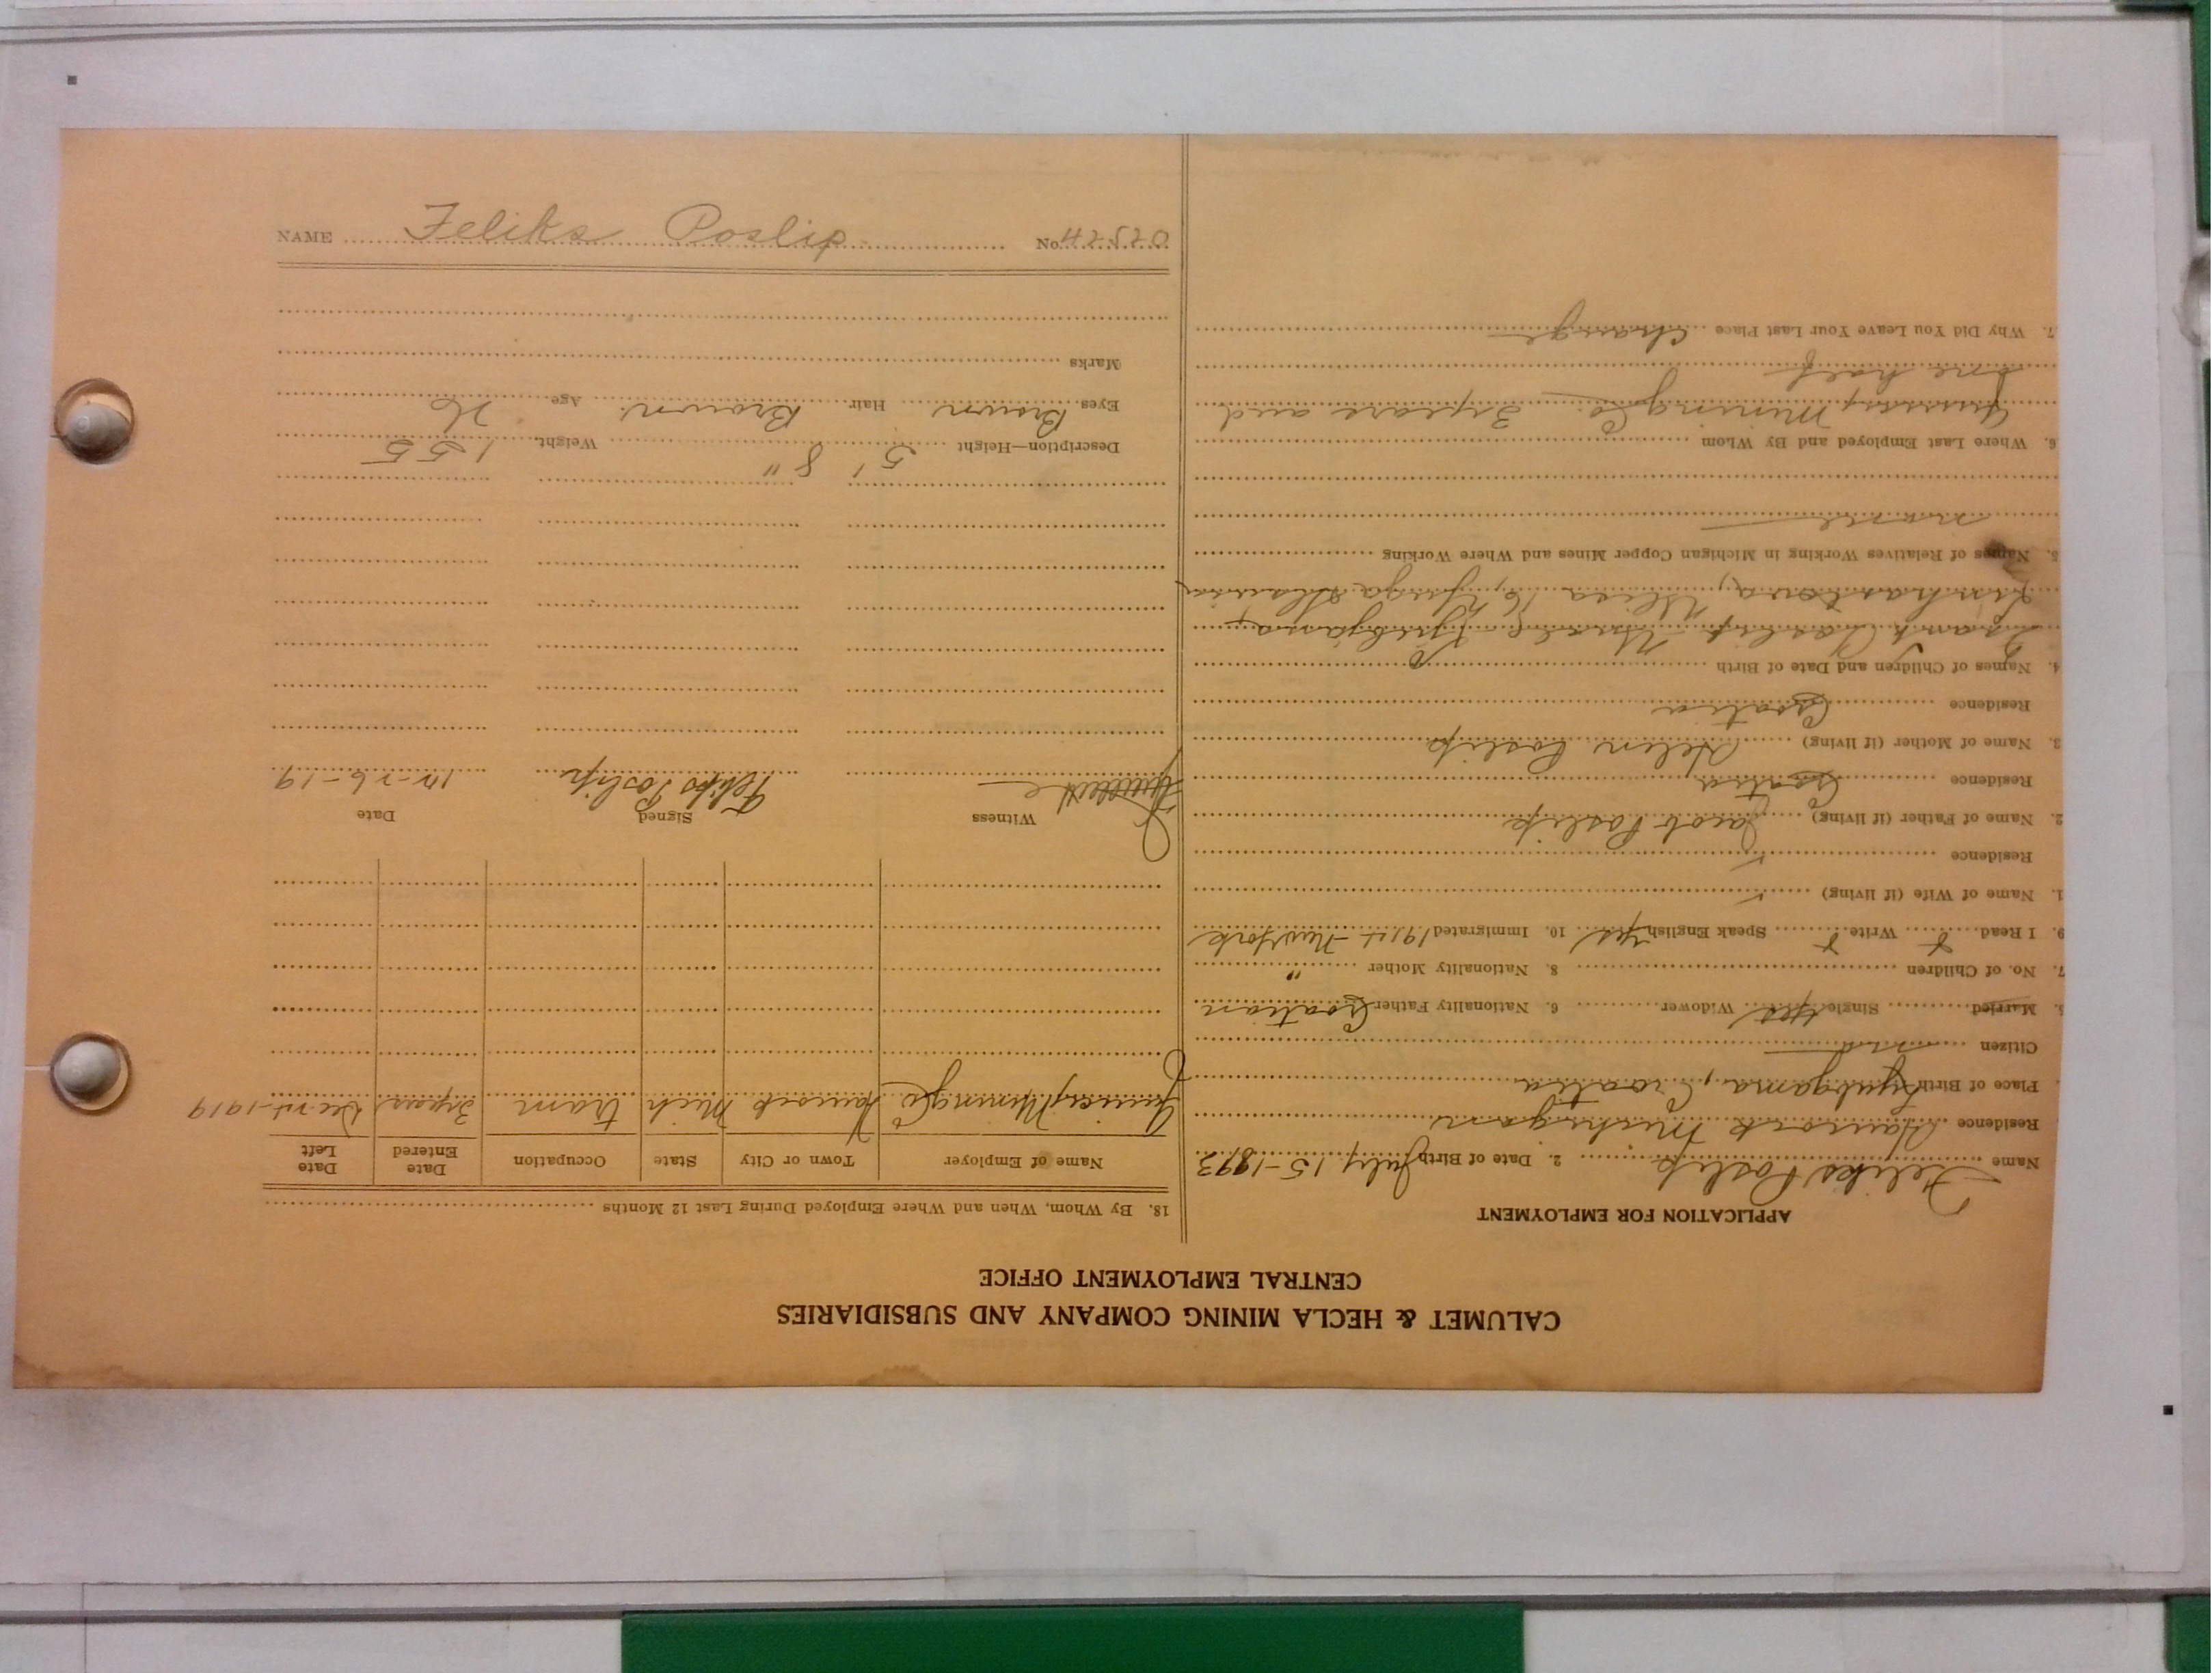 NAME Feliks Poslip No. 42520
CALUMET & HECLA MINING COMPANY AND SUBSIDIARIES
CENTRAL EMPLOYMENT OFFICE
APPLICATION FOR EMPLOYMENT
Name Feliks Poslip 2. Date of Birth July 15-1893
Residence Hancock Michigan
Place of Birth Croatia
Citizen
5. Married Single yes Widower 6. Nationality Father Croatian
7. No. of Children 8. Nationality Mother "
9. I Read Write Speak English yes 10. Immigrated New York
1. Name of Wife (if living)
Residence
2. Name of Father (if living) Jacob Poslip
Residence Croatia
3. Name of Mother (if living) Helen Poslip
Residence Croatia
4. Names of Children and Date of Birth
Frank Poslip
5. Names of Relatives Working in Michigan Copper Mines and Where Working
none
6. Where Last Employed and By Whom
Quincy Mining Co. 3 years and
one half
7. Why Did You Leave Your Last Place change
18. By Whom, When and Where Employed During Last 12 Months
Name of Employer Town or City State Occupation Date Entered Date Left
Quincy Mining Co Hancock Mich tram 3 years 1919
Witness Signed Date
Feliks Poslip 12-26-19
Description—Height 5' 8" Weight 155
Eyes Brown Hair Brown Age 26
Marks